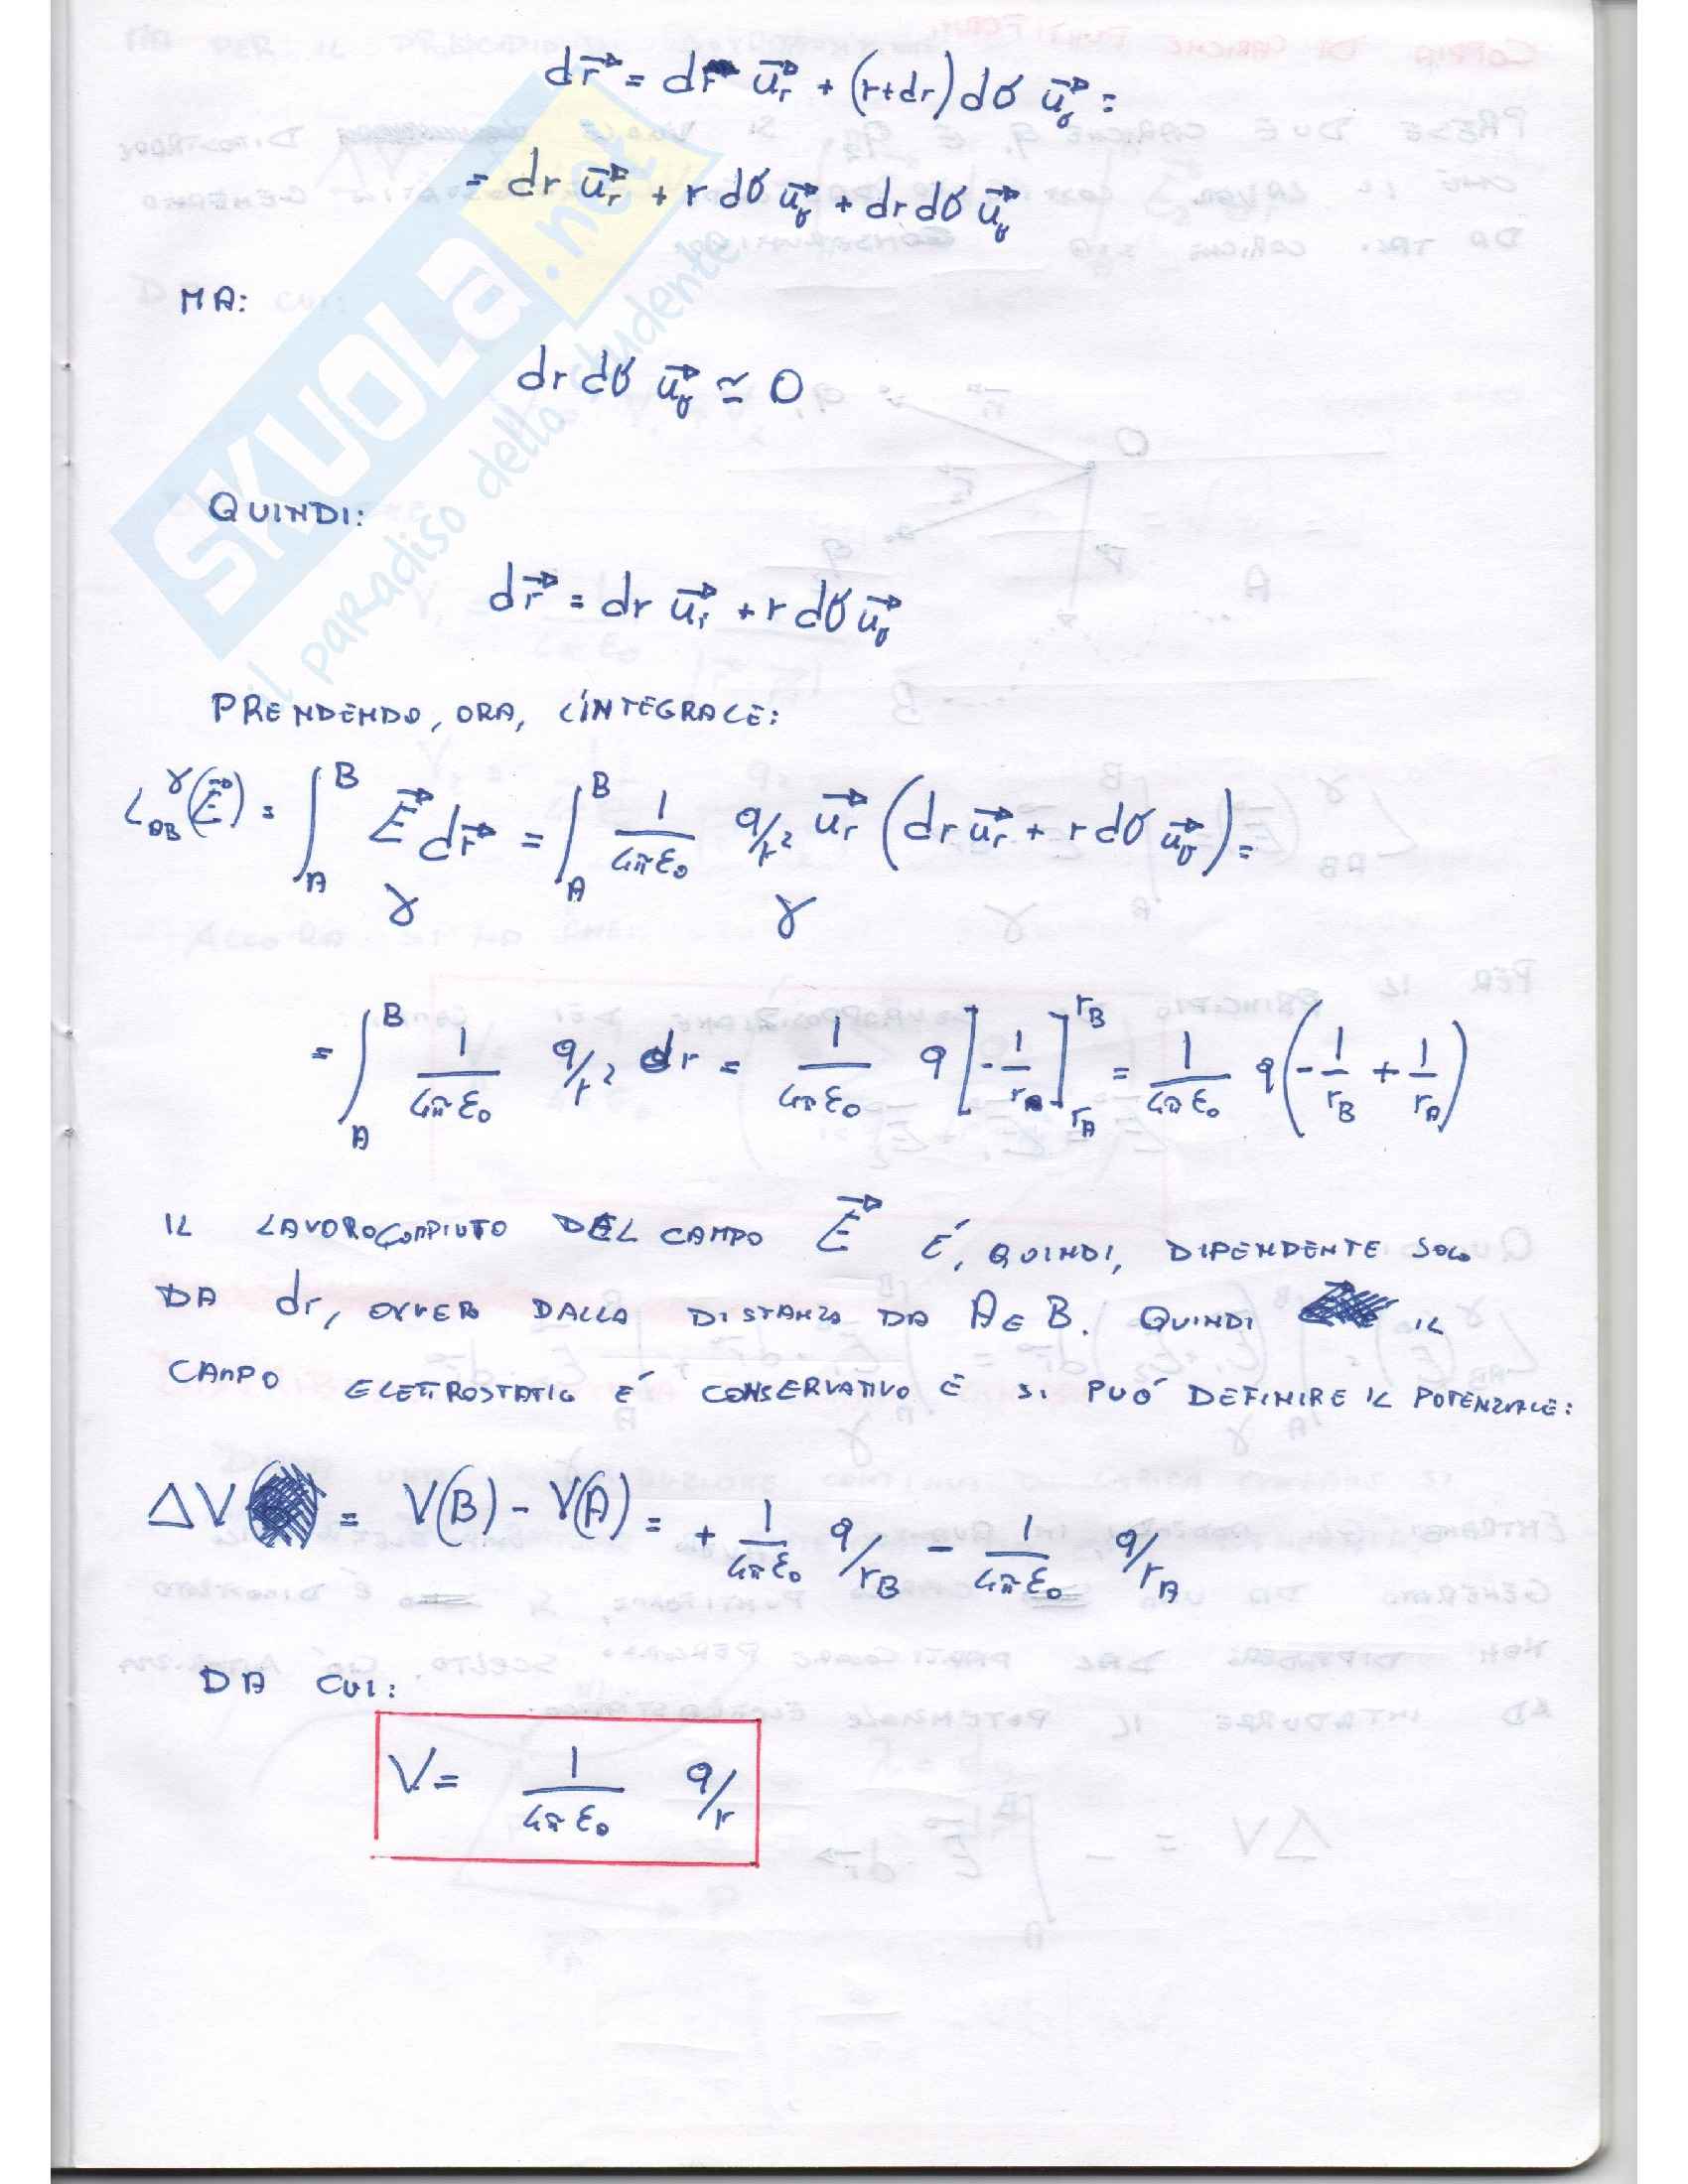 dr⃗ = dr u⃗r + (r+dr) dσ u⃗σ =
= dr u⃗r + r dσ u⃗σ + dr dσ u⃗σ
MA:
dr dσ u⃗σ ≃ 0
QUINDI:
dr⃗ = dr u⃗r + r dσ u⃗σ
PRENDENDO, ORA, L'INTEGRALE:
L_AB^γ(E⃗) = ∫_A^B E⃗ dr⃗ = ∫_A^B 1/4πε₀ q/r² u⃗r (dr u⃗r + r dσ u⃗σ) =
γ γ
= ∫_A^B 1/4πε₀ q/r² dr = 1/4πε₀ q [-1/r_A]_{r_A}^{r_B} = 1/4πε₀ q (-1/r_B + 1/r_A)
IL LAVORO COMPIUTO DEL CAMPO E⃗ É, QUINDI, DIPENDENTE SOLO
DA dr, OVVERO DALLA DISTANZA DA A E B. QUINDI IL
CAMPO ELETTROSTATICO E' CONSERVATIVO E SI PUO' DEFINIRE IL POTENZIALE:
ΔV = V(B) - V(A) = + 1/4πε₀ q/r_B - 1/4πε₀ q/r_A
DA CUI:
V = 1/4πε₀ q/r
SKUOLA.net
il paradiso dello studente